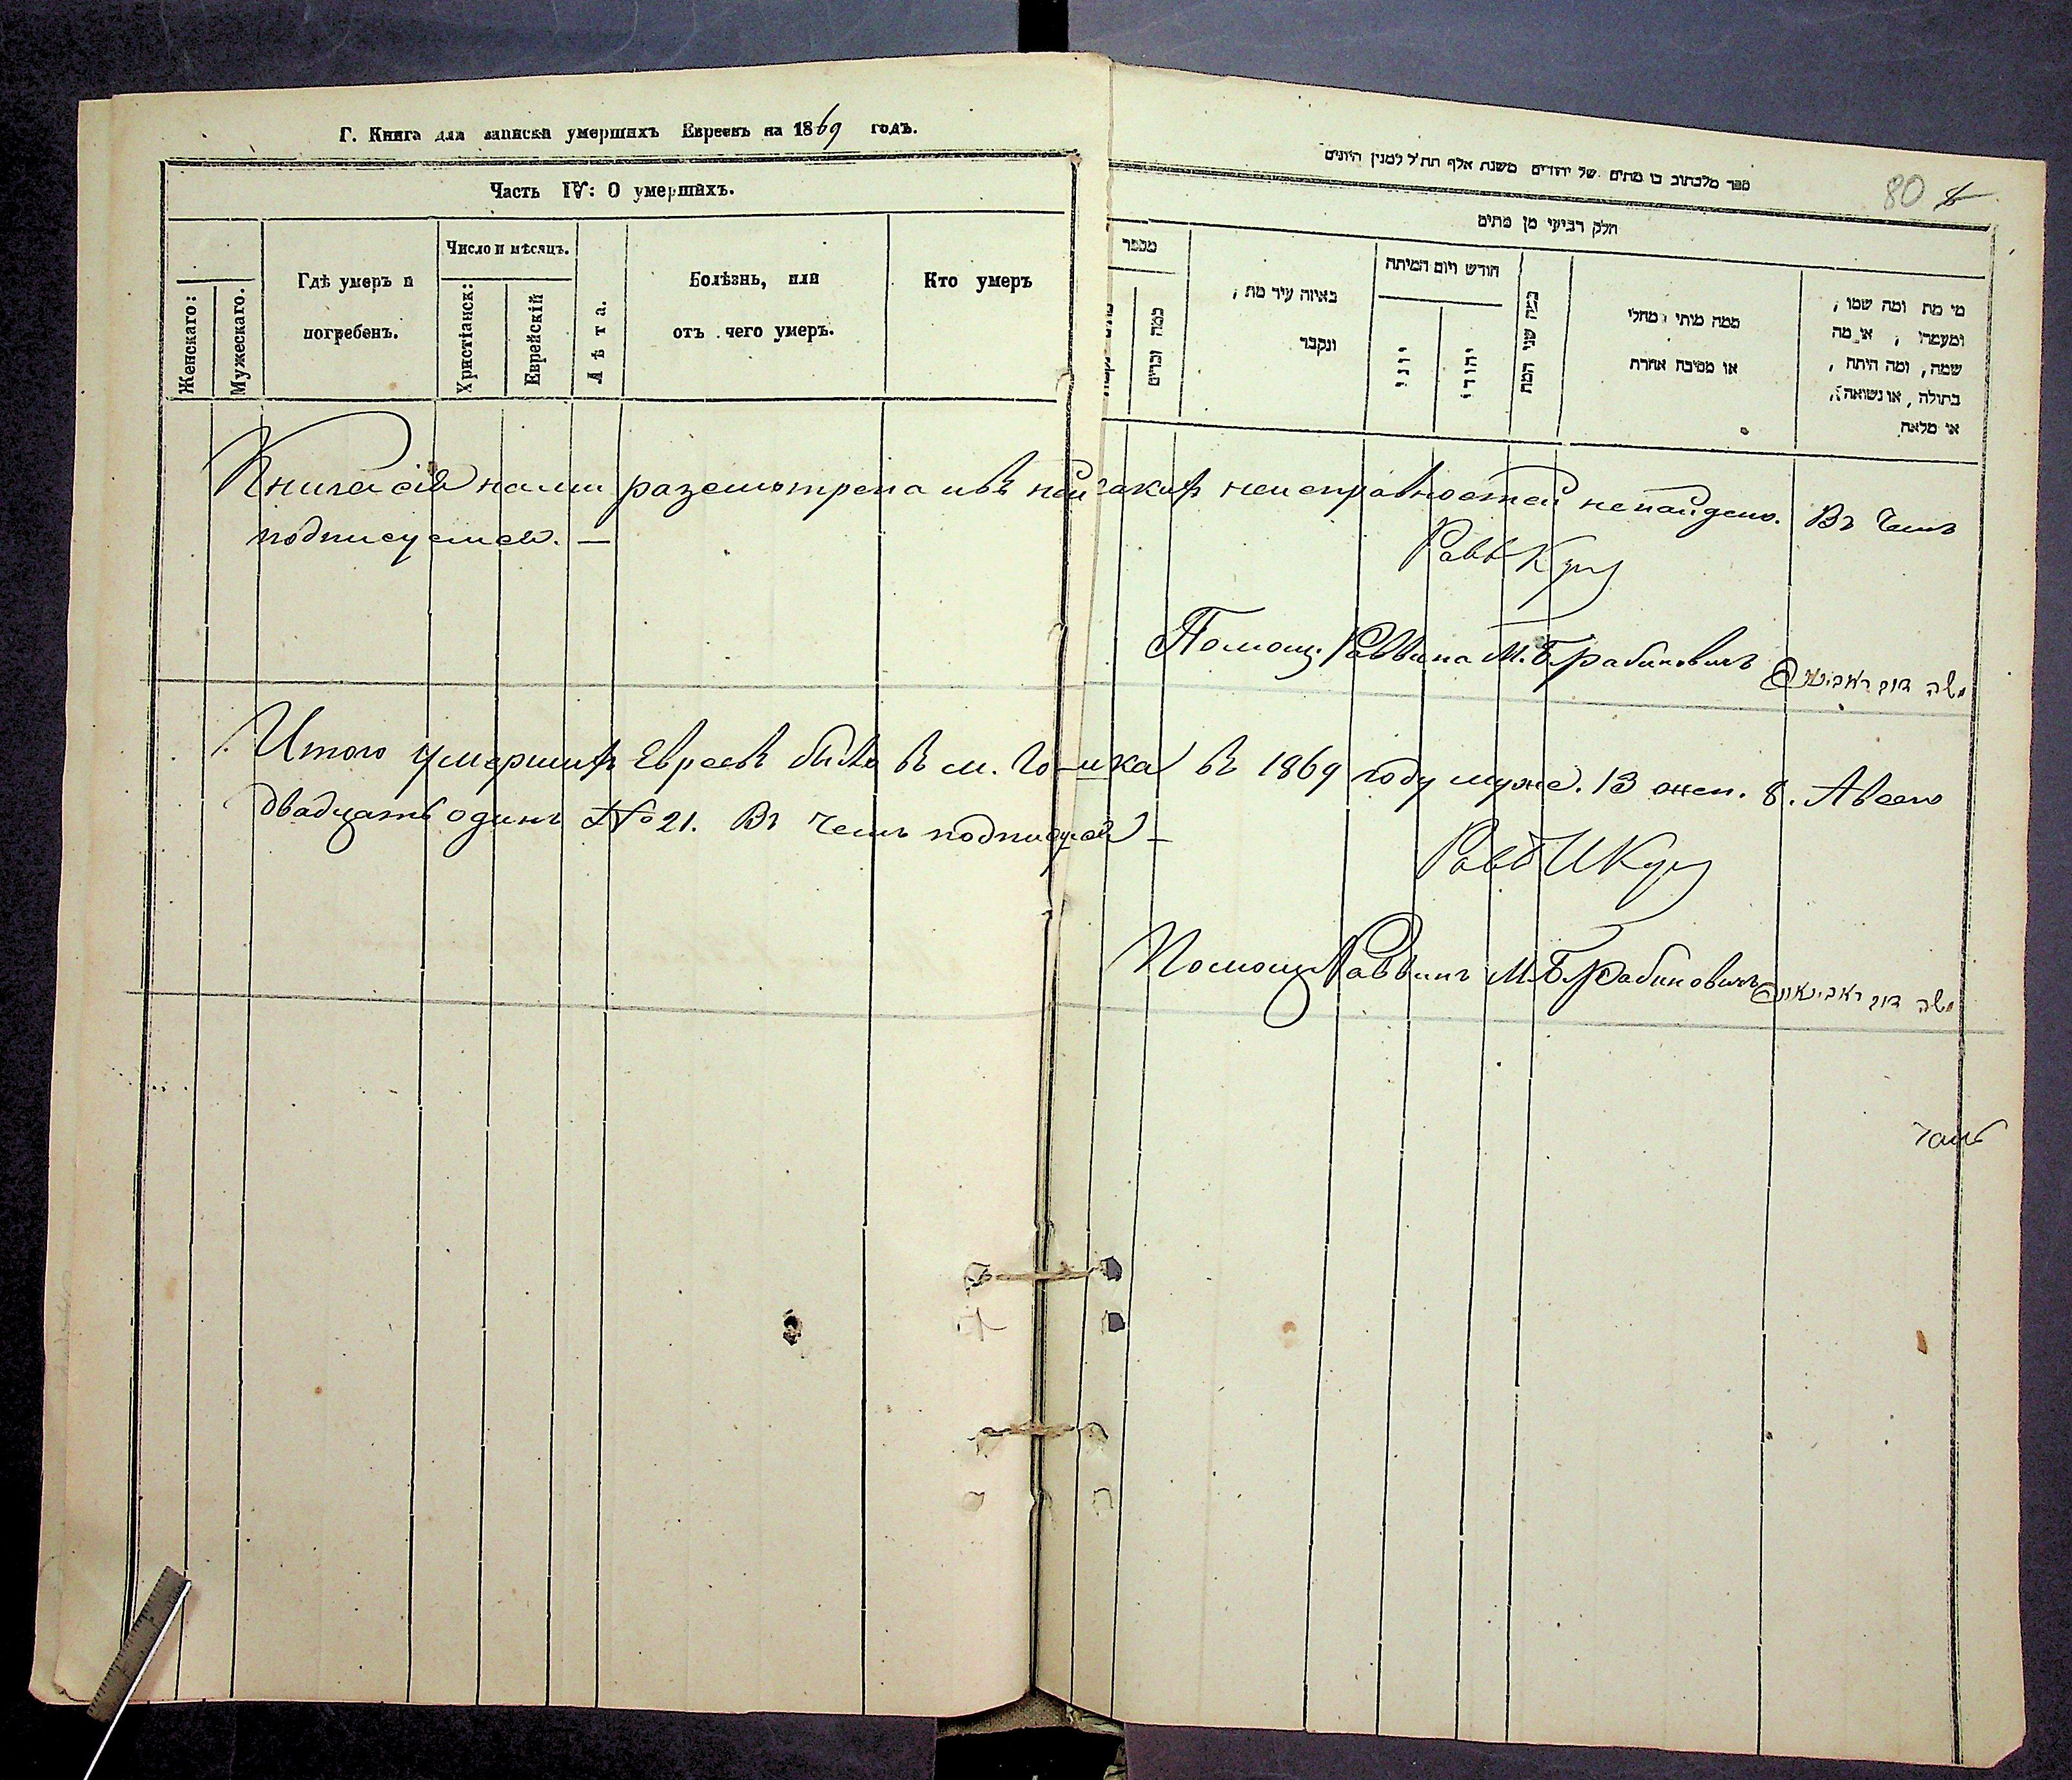 Г. Книга для записки умершихъ Евреевъ на 1869 годъ.
Часть IV: О умершихъ.
Женскаго:
Мужескаго.
Гдѣ умеръ и
погребенъ.
Число и мѣсяцъ.
Христіанск:
Еврейскій
Лѣта.
Болѣзнь, или
отъ чего умеръ.
Кто умеръ
ספר מלכתוב בו מתים של יהודים משנת אלף תת״ל למנין היונים
80
חלק רביעי מן מתים
מספר
כמה זכרים
באיזה עיר מת ,
ונקבר
חודש ויום המיתה
יוני
יהודי
כמה שני המת
ממה מותי מחלי
או מסיבה אחרת
מי מת ומה שמו ,
ומעמדו , או מה
שמה , ומה היתה ,
בתולה , או נשואה ,
או מלאה
Книга сія нами разсмотрена и въ ней какихъ неисправностей ненайдено. Въ чемъ
подписуемся. —
Равв
Помощ. Раввина М. Б. Рабиновичъ משה דוב ראבינאוויץ
Итого умершихъ Евреевъ было въ м. въ 1869 году муже. 13 жен. 8. А всего
двадцать одинъ № 21. Въ чемъ подписуемся —
Равв И
Помощ Раввинъ М. Б. Рабиновичъ משה דוב ראבינאוויץ